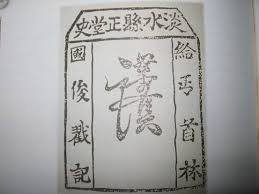 淡水縣正堂史
給丐首林
國俊戳記